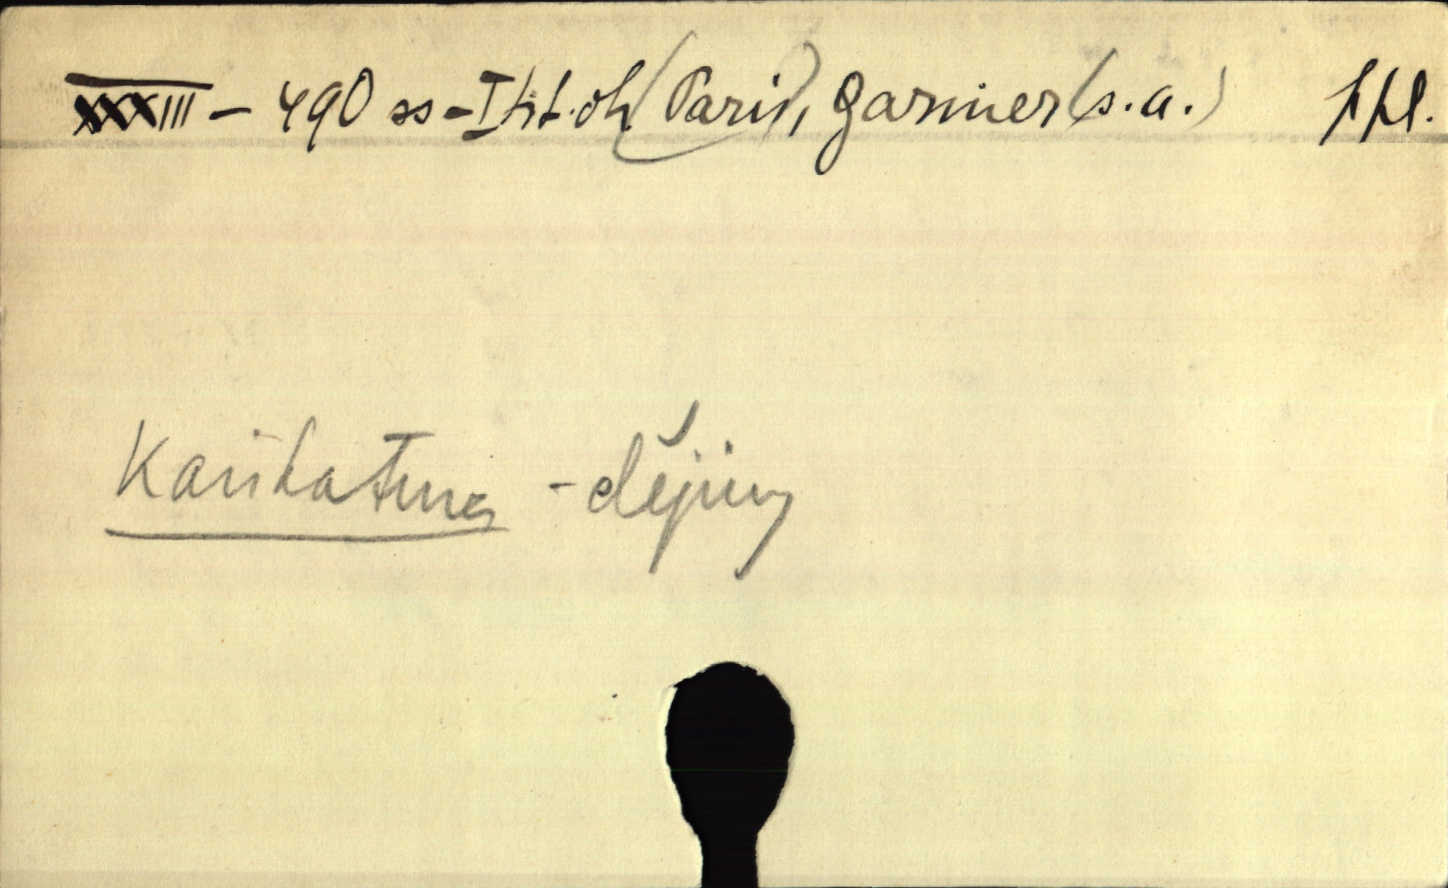 XXXIII – 490 ss - I tit. ob. (Paris), Garnier (s.a.) ppl.
Karikatura - dějiny